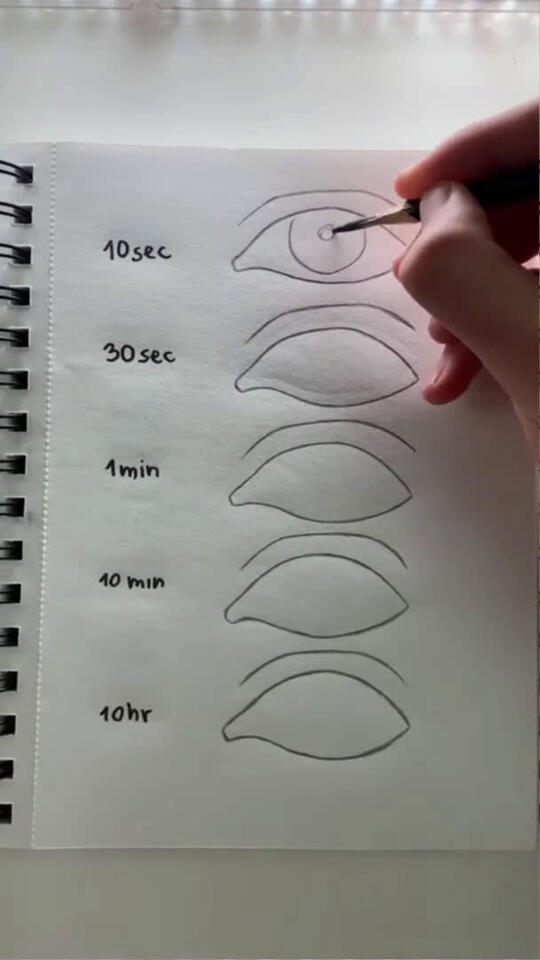 10sec
30sec
1min
10 min
10hr